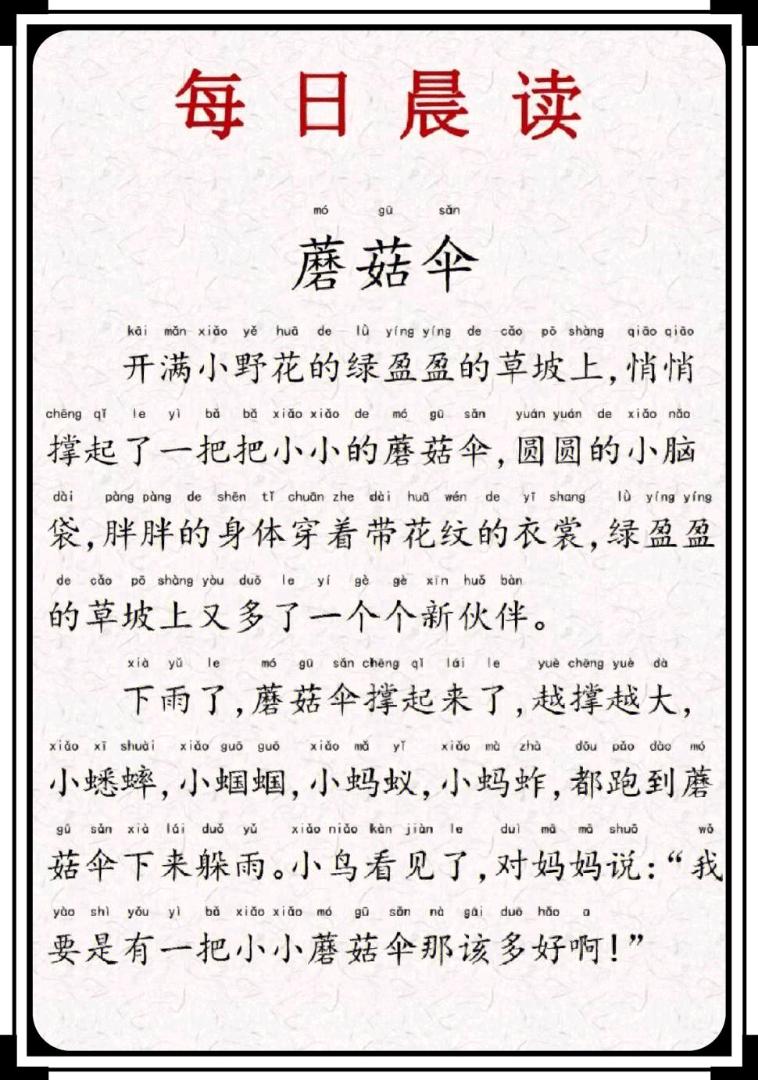 每日晨读
mó gū sǎn
蘑菇伞
kāi mǎn xiǎo yě huā de lǜ yíng yíng de cǎo pō shàng qiāo qiāo
开满小野花的绿盈盈的草坡上,悄悄
chēng qǐ le yì bǎ bǎ xiǎo xiǎo de mó gū sǎn yuán yuán de xiǎo nǎo
撑起了一把把小小的蘑菇伞,圆圆的小脑
dài pàng pàng de shēn tǐ chuān zhe dài huā wén de yī shang lǜ yíng yíng
袋,胖胖的身体穿着带花纹的衣裳,绿盈盈
de cǎo pō shàng yòu duō le yí gè gè xīn huǒ bàn
的草坡上又多了一个个新伙伴。
xià yǔ le mó gū sǎn chēng qǐ lái le yuè chēng yuè dà
下雨了,蘑菇伞撑起来了,越撑越大,
xiǎo xī shuài xiǎo guō guō xiǎo mǎ yǐ xiǎo mà zhà dōu pǎo dào mó
小蟋蟀,小蝈蝈,小蚂蚁,小蚂蚱,都跑到蘑
gū sǎn xià lái duǒ yǔ xiǎo niǎo kàn jiàn le duì mā mā shuō wǒ
菇伞下来躲雨。小鸟看见了,对妈妈说:“我
yào shì yǒu yì bǎ xiǎo xiǎo mó gū sǎn nà gāi duō hǎo a
要是有一把小小蘑菇伞那该多好啊!”